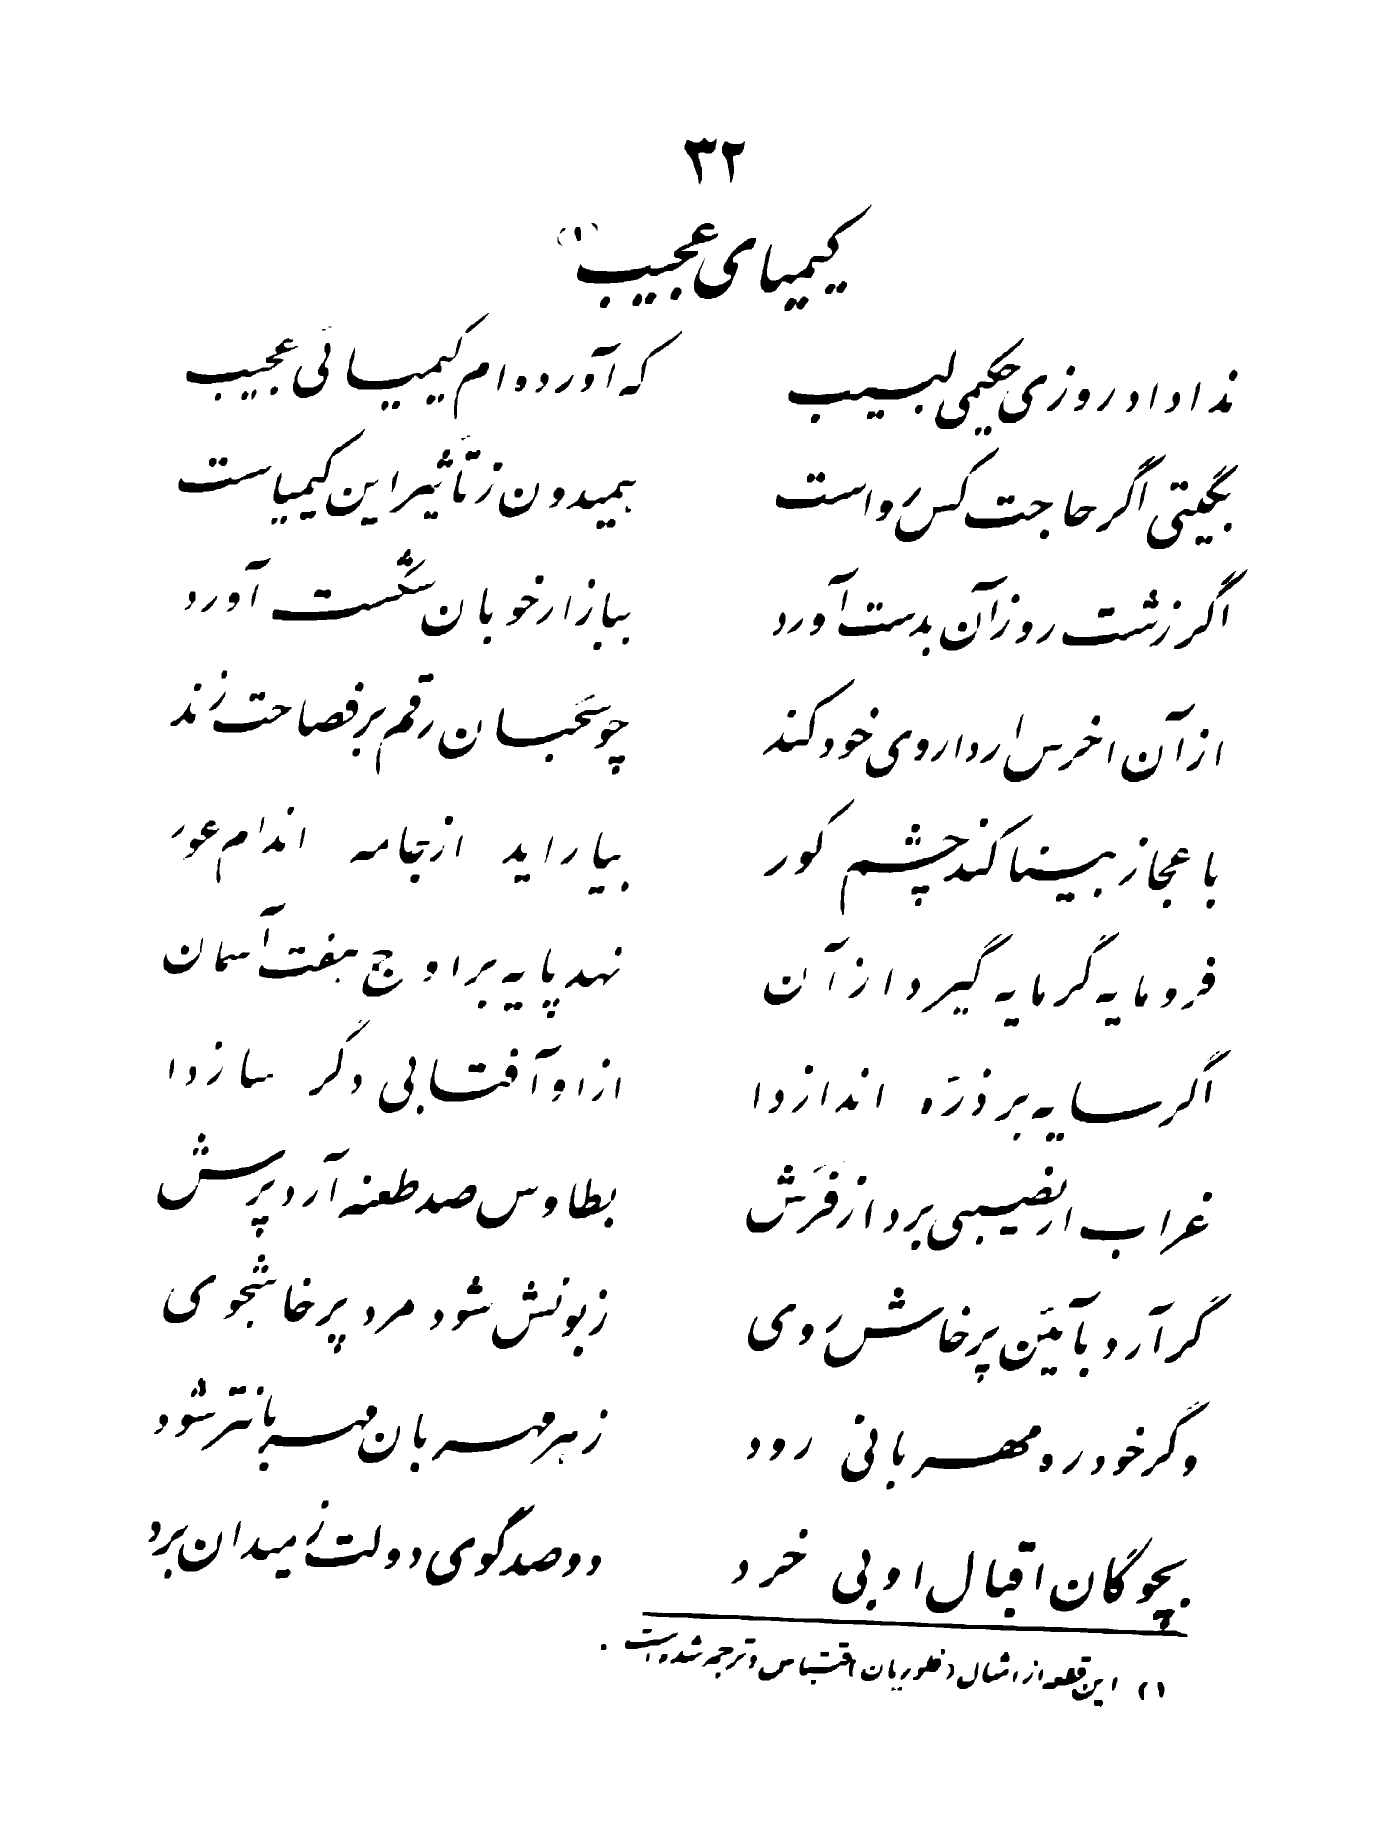 ۳۲
کیمیای عجیب (۱)
ندا داد روزی حکیمی لبیب که آورده ام کیمیائی عجیب
بگیتی اگر حاجت کس رواست همیدون ز تأثیر این کیمیاست
اگر زشت روز آن بدست آورد ببازار خوبان شکست آورد
از آن اخرس ار داروی خود کند چو سَحبان رقم بر فصاحت زند
با عجاز بینا کند چشم کور بیاراید از جامه اندام عور
فرومایه گر مایه گیرد از آن نهد پایه بر اوج هفت آسمان
اگر سایه بر ذرّه اندازدا از او آفتابی دگر سازدا
غراب ار نصیبی برد از فرش بطاوس صد طعنه آرد پرش
گر آرد بآئین پرخاش روی زبونش شود مرد پرخاشجوی
وگر خود ره مهربانی رود ز هر مهربان مهربانتر شود
بچوگان اقبال او بی خرد دو صد گوی دولت ز میدان برد
۱) این قطعه از امثال فلوریان اقتباس و ترجمه شده است .